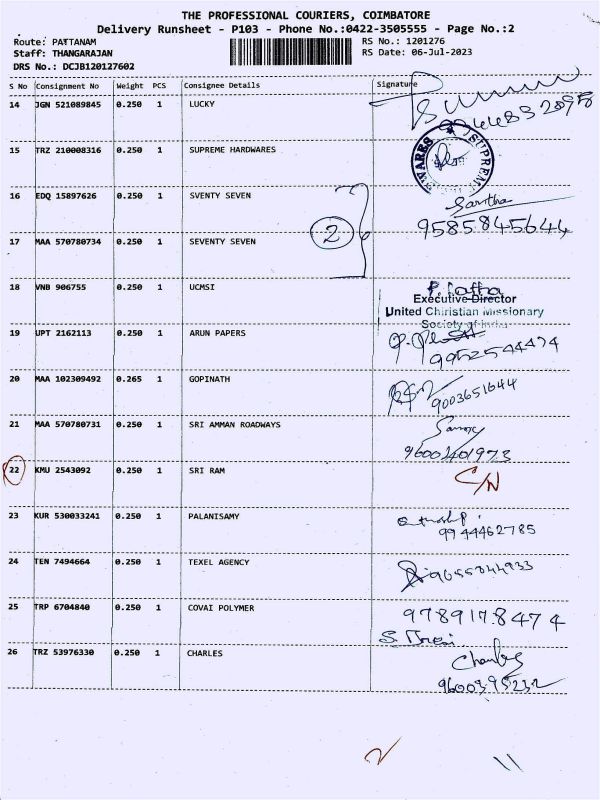 THE PROFESSIONAL COURIERS, COIMBATORE
Delivery Runsheet - P103 - Phone No.:0422-3505555 - Page No.:2
Route: PATTANAM RS No.: 1201276
Staff: THANGARAJAN RS Date: 06-Jul-2023
DRS No.: DCJB120127602
S No Consignment No Weight PCS Consignee Details Signature
14 JGN 521089845 0.250 1 LUCKY
15 TRZ 210008316 0.250 1 SUPREME HARDWARES
SUPREM WARES
16 EDQ 15897626 0.250 1 SVENTY SEVEN Saritha
9585845644
2
17 MAA 570780734 0.250 1 SEVENTY SEVEN
18 VNB 906755 0.250 1 UCMSI P. Latha
Executive Director
United Christian Missionary
Society of India
19 UPT 2162113 0.250 1 ARUN PAPERS
9952544474
20 MAA 102309492 0.265 1 GOPINATH 9003651644
21 MAA 570780731 0.250 1 SRI AMMAN ROADWAYS
9600401973
22 KMU 2543092 0.250 1 SRI RAM C/N
23 KUR 530033241 0.250 1 PALANISAMY
9944462785
24 TEN 7494664 0.250 1 TEXEL AGENCY 9655344933
25 TRP 6704840 0.250 1 COVAI POLYMER 9789178474
26 TRZ 53976330 0.250 1 CHARLES Charles
9600395232